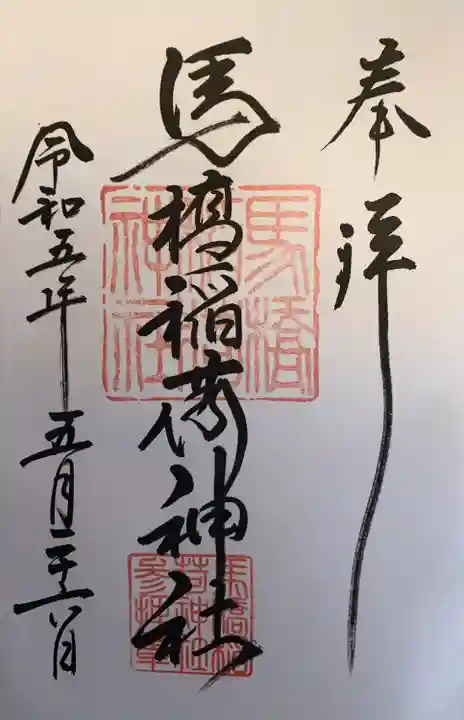 奉拝
馬橋稲荷神社
令和五年五月二十六日
馬橋稲荷神社
馬橋稲荷神社参拝章